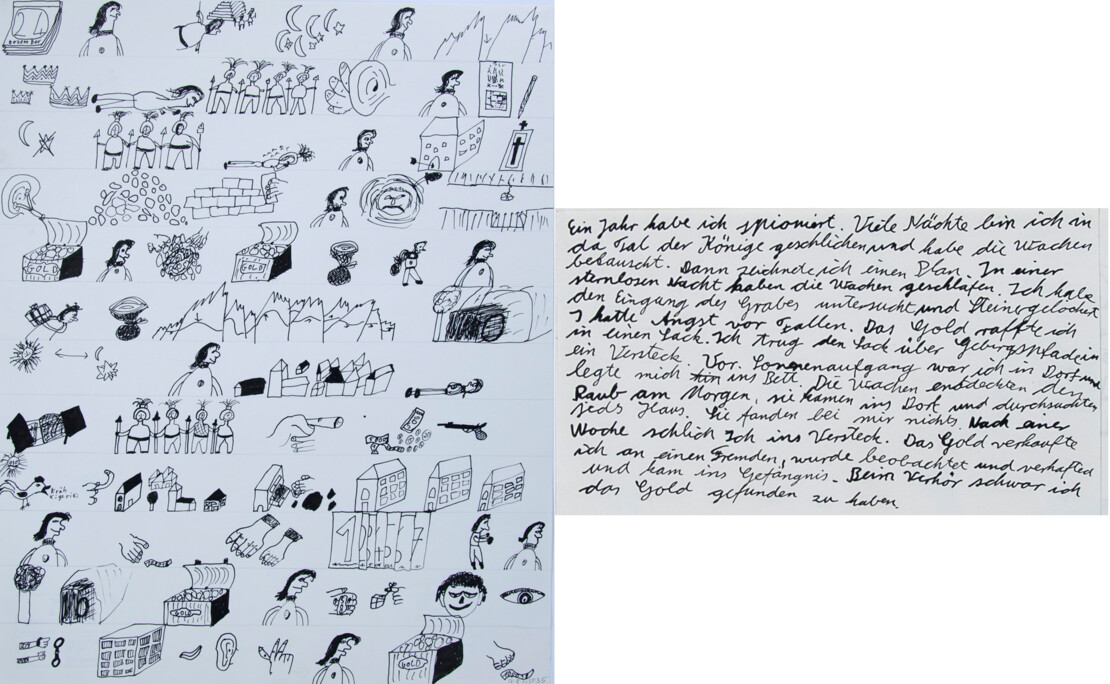 24
Dezember
GOLD
GOLD
Kräh
Kikeriki
GOLD
GOLD
Ein Jahr habe ich spioniert. Viele Nächte bin ich in
da Tal der Könige geschlichen und habe die Wachen
belauscht. Dann zeichnete ich einen Plan. In einer
sternlosen Nacht haben die Wachen geschlafen. Ich habe
den Eingang des Grabes untersucht und Steine gelockert
I hatte Angst vor Fallen. Das Gold raffte ich
in einen Sack. Ich trug den Sack über Gebirgspfade in
ein Versteck. Vor Sonnenaufgang war ich in Dorf und
legte mich ins Bett. Die Wachen entdeckten den
Raub am Morgen, sie kamen ins Dorf und durchsuchten
jeds Haus. Sie fanden bei mir nichts. Nach einer
Woche schlich Ich ins Versteck. Das Gold verkaufte
ich an einen Fremden, wurde beobachtet und verhafted
und kam ins Gefängnis. Beim Verhör schwor ich
das Gold gefunden zu haben.